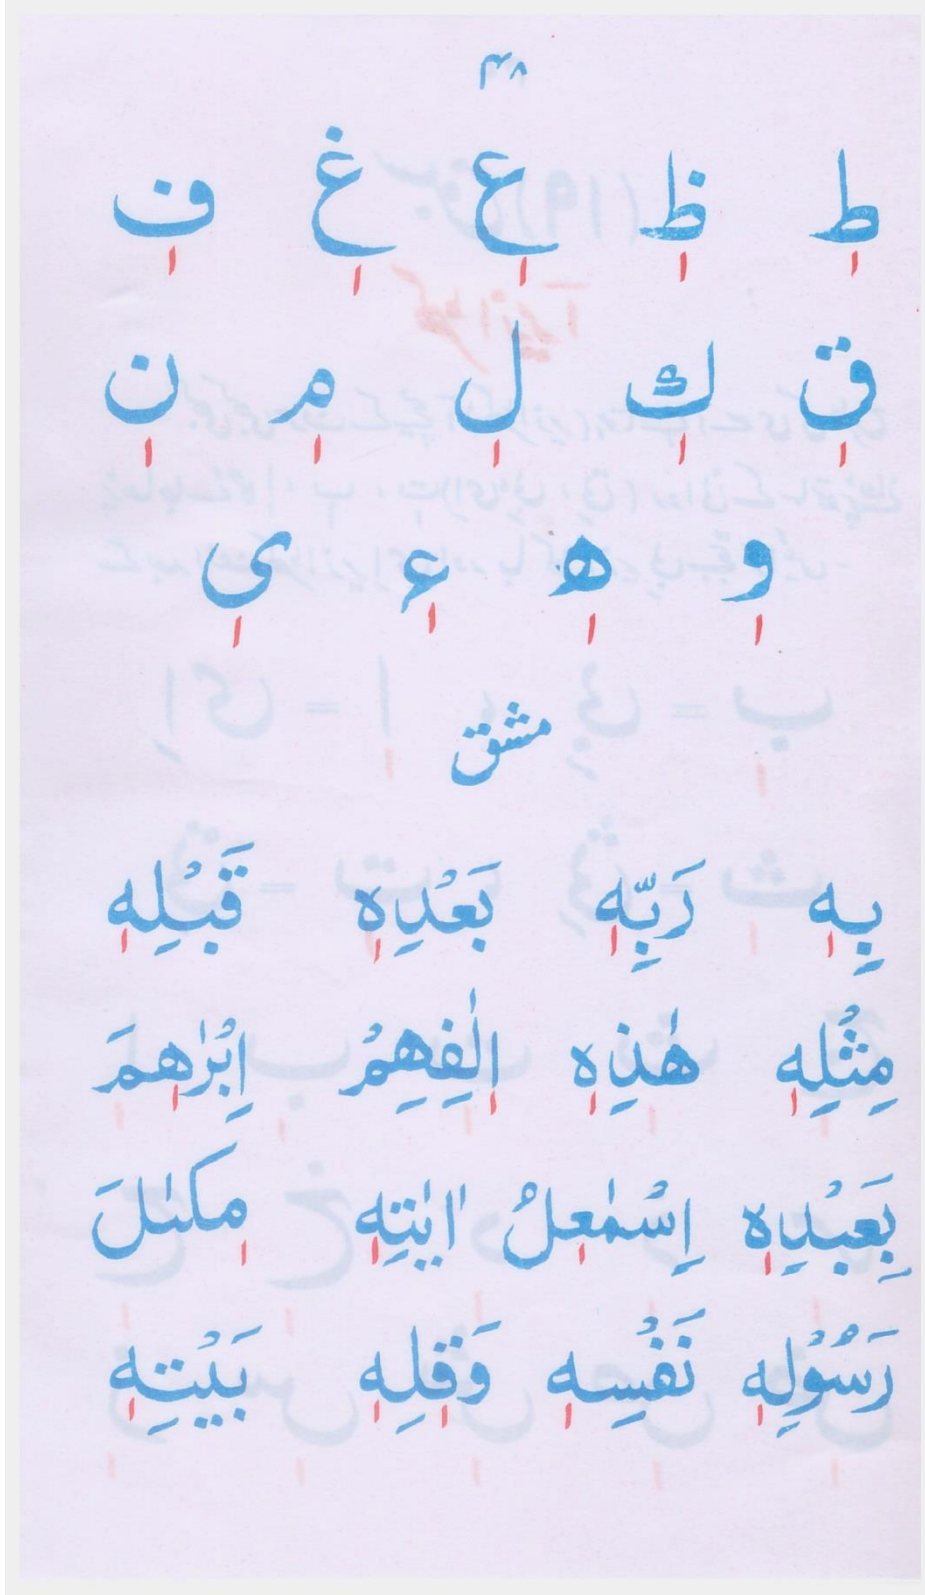 ۳۸
طٖ ظٖ عٖ غٖ فٖ
قٖ كٖ لٖ مٖ نٖ
وٖ هٖ ءٖ یٖ
مشق
بِهٖ رَبِّهٖ بَعْدِهٖ قَبْلِهٖ
مِثْلِهٖ هٰذِهٖ اٖلٰفِهِمْ اِبْرٰهٖمَ
بِعَبْدِهٖ اِسْمٰعٖلُ اٰيٰتِهٖ مٖكٰىلَ
رَسُوْلِهٖ نَفْسِهٖ وَقِلِهٖ بَيْتِهٖ